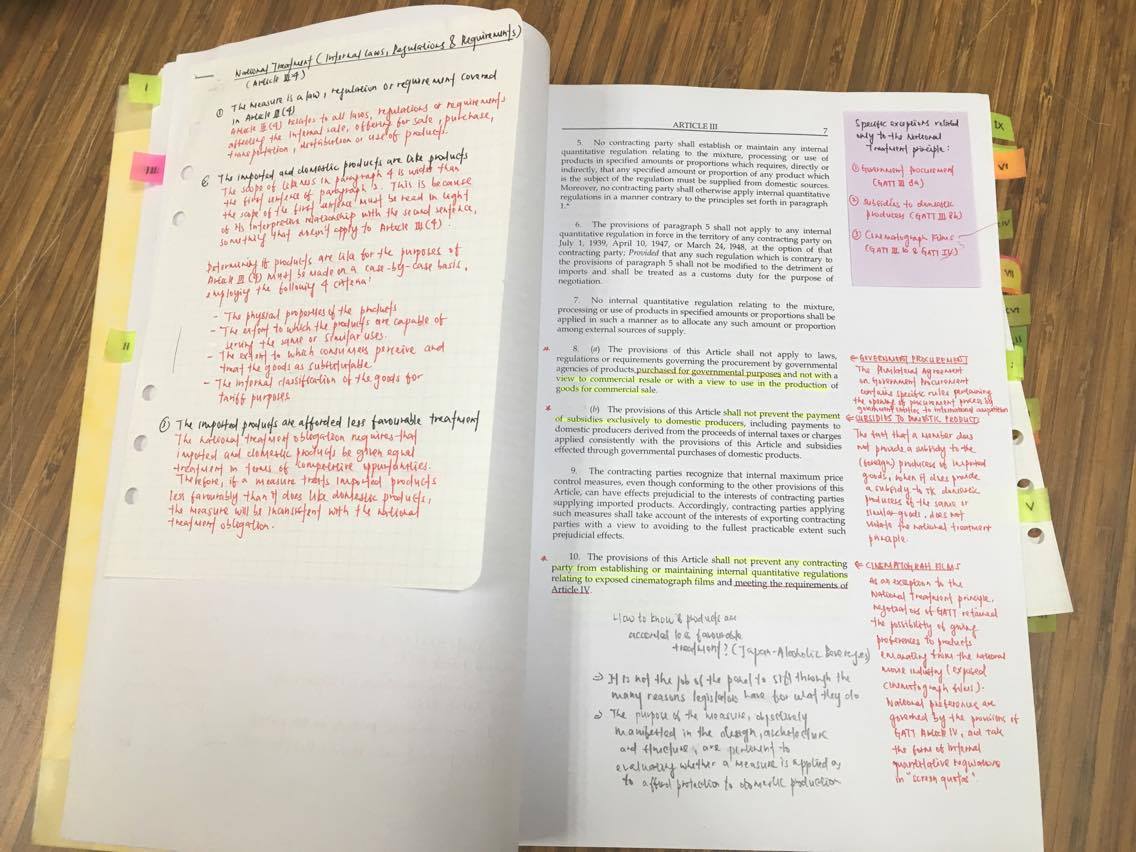 National Treatment (Internal Laws, Regulations & Requirements)
(Article III:4)
① The measure is a law, regulation or requirement covered
in Article III(4)
Article III(4) relates to all laws, regulations or requirements
affecting the internal sale, offering for sale, purchase,
transportation, distribution or use of products.
② The imported and domestic products are like products
The scope of likeness in paragraph 4 is wider than
the first sentence of paragraph 2. This is because
the scope of the first sentence must be read in light
of its interpretive relationship with the second sentence,
something that doesn't apply to Article III(4).
Determining if products are like for the purposes of
Article III(4) must be made on a case-by-case basis,
employing the following 4 criteria:
- The physical properties of the products
- The extent to which the products are capable of
serving the same or similar uses.
- The extent to which consumers perceive and
treat the goods as substitutable
- The internal classification of the goods for
tariff purposes
③ The imported products are afforded less favourable treatment
The national treatment obligation requires that
imported and domestic products be given equal
treatment in terms of competitive opportunities.
Therefore, if a measure treats imported products
less favourably than it does like domestic products,
the measure will be inconsistent with the national
treatment obligation.
I
III
II
ARTICLE III 7
5. No contracting party shall establish or maintain any internal
quantitative regulation relating to the mixture, processing or use of
products in specified amounts or proportions which requires, directly or
indirectly, that any specified amount or proportion of any product which
is the subject of the regulation must be supplied from domestic sources.
Moreover, no contracting party shall otherwise apply internal quantitative
regulations in a manner contrary to the principles set forth in paragraph
1.*
6. The provisions of paragraph 5 shall not apply to any internal
quantitative regulation in force in the territory of any contracting party on
July 1, 1939, April 10, 1947, or March 24, 1948, at the option of that
contracting party; Provided that any such regulation which is contrary to
the provisions of paragraph 5 shall not be modified to the detriment of
imports and shall be treated as a customs duty for the purpose of
negotiation.
7. No internal quantitative regulation relating to the mixture,
processing or use of products in specified amounts or proportions shall be
applied in such a manner as to allocate any such amount or proportion
among external sources of supply.
8. (a) The provisions of this Article shall not apply to laws,
regulations or requirements governing the procurement by governmental
agencies of products purchased for governmental purposes and not with a
view to commercial resale or with a view to use in the production of
goods for commercial sale.
(b) The provisions of this Article shall not prevent the payment
of subsidies exclusively to domestic producers, including payments to
domestic producers derived from the proceeds of internal taxes or charges
applied consistently with the provisions of this Article and subsidies
effected through governmental purchases of domestic products.
9. The contracting parties recognize that internal maximum price
control measures, even though conforming to the other provisions of this
Article, can have effects prejudicial to the interests of contracting parties
supplying imported products. Accordingly, contracting parties applying
such measures shall take account of the interests of exporting contracting
parties with a view to avoiding to the fullest practicable extent such
prejudicial effects.
10. The provisions of this Article shall not prevent any contracting
party from establishing or maintaining internal quantitative regulations
relating to exposed cinematograph films and meeting the requirements of
Article IV.
How to know if products are
accorded less favourable
treatment? (Japan-Alcoholic Beverages)
⇒ It is not the job of the panel to sift through the
many reasons legislators have for what they do
⇒ The purpose of the measure, objectively
manifested in the design, architecture
and structure, are pertinent to
evaluating whether a measure is applied as
to afford protection to domestic production
Specific exceptions related
only to the National
Treatment principle:
① Government procurement
(GATT III 8a)
② Subsidies to domestic
producers (GATT III 8b)
③ Cinematograph Films
(GATT III 10 & GATT IV)
← GOVERNMENT PROCUREMENT
The Plurilateral Agreement
on Government Procurement
contains specific rules pertaining
the opening of procurement process by
government entities to international competition
← SUBSIDIES TO DOMESTIC PRODUCT
The fact that a member does
not provide a subsidy to the
(foreign) producers of imported
goods, when it does provide
a subsidy to the domestic
producers of the same or
similar goods, does not
violate the national treatment
principle.
← CINEMATOGRAPH FILMS
As an exception to the
National Treatment principle,
negotiators of GATT retained
the possibility of giving
preferences to products
emanating from the national
movie industry (exposed
cinematograph films).
National preferences are
governed by the provisions of
GATT Article IV, and take
the form of internal
quantitative regulations
in "screen quotas".
IX
VI
VII
XVI
V